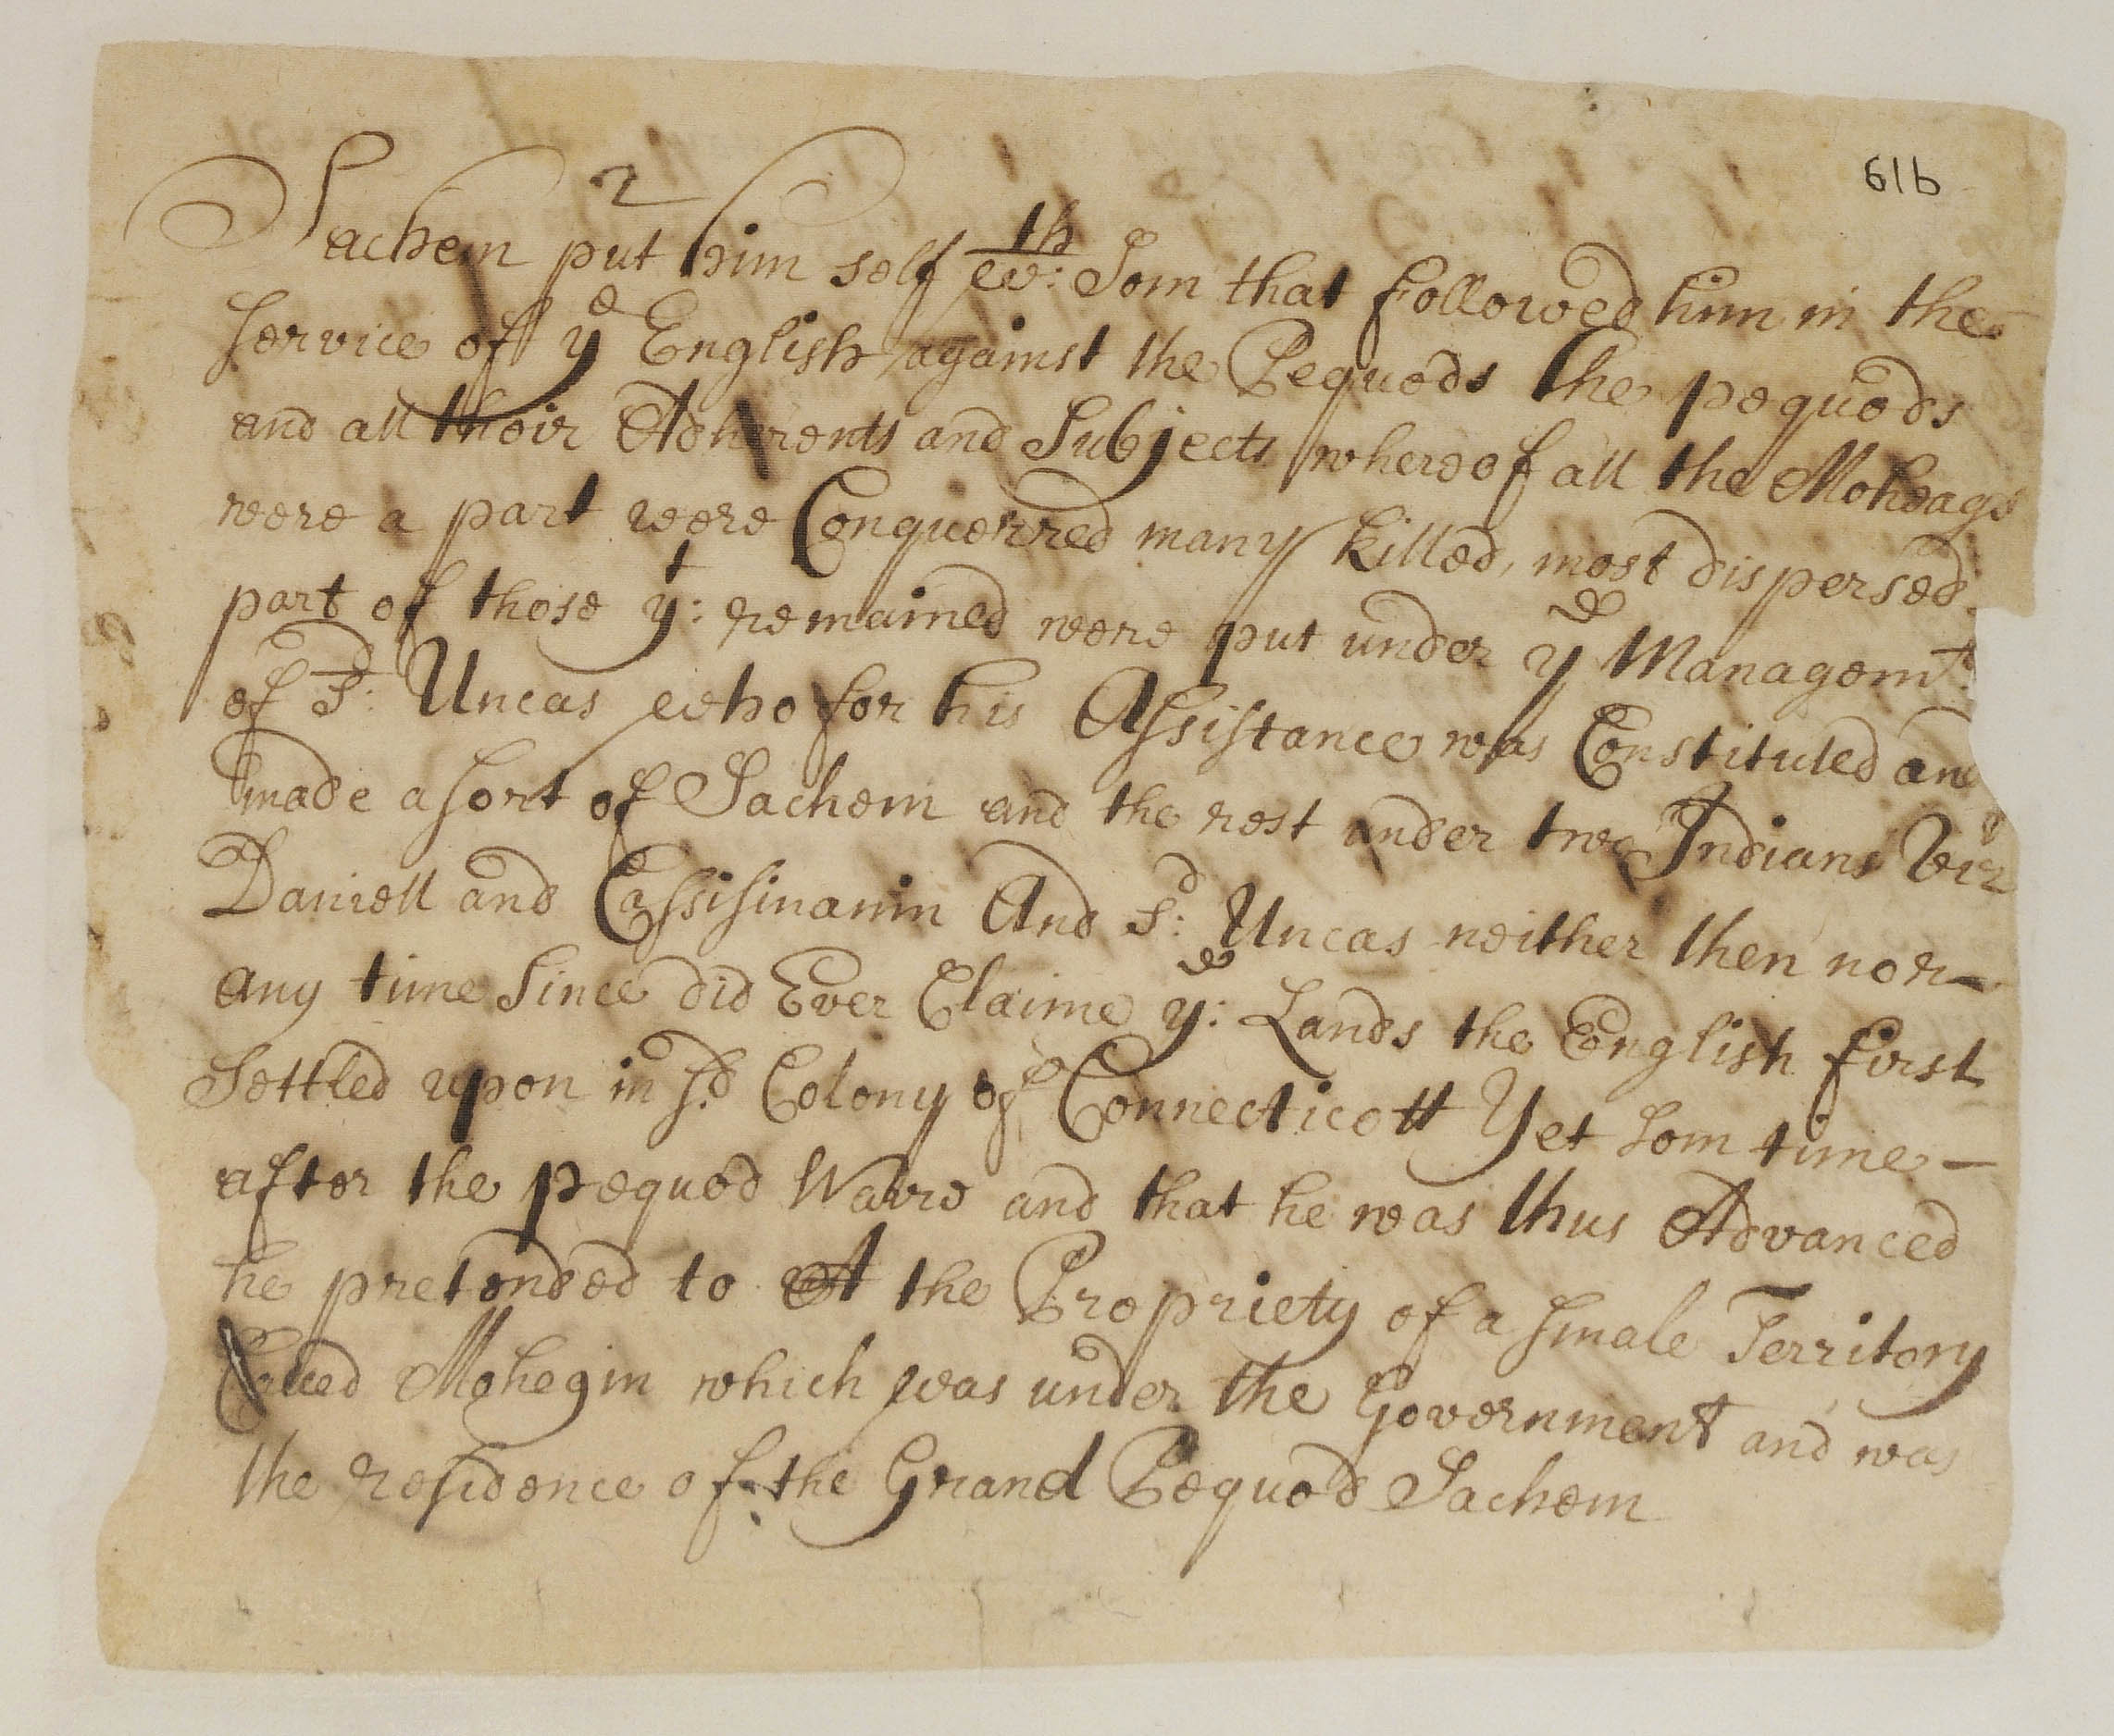 61b
2
Sachem put him self wth: Som that followed him in the
service of ye English against the Pequods The pequods
and all their Adherents and Subjects whereof all the Moheags
were a part were Conquerred many killed, most dispersed
part of those yt: remained were put under ye Managemt:
of sd: Uncas who for his Assistance was Constituted and
made a sort of Sachem and the rest under two Indians Viz
Daniell and Cassisinamin And sd: Uncas neither then nor—
any time Since did Ever Claime ye: Lands the English first
Settled upon in sd Colony of Connecticott Yet som time—
after the pequod Warre and that he was thus Advanced
he pretended to the Propriety of a smale Territory
Called Mohegin which was under the Government and was
the residence of the Grand Pequod Sachem